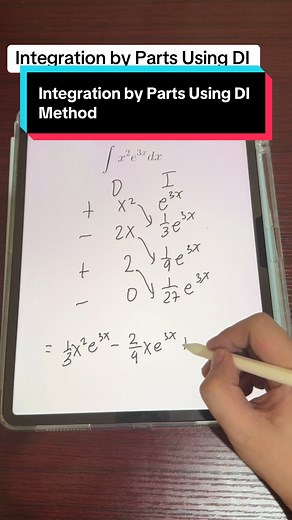 Integration by Parts Using DI
Integration by Parts Using DI
Method
∫ x²e³ˣdx
D I
+ x² e³ˣ
- 2x 1/3 e³ˣ
+ 2 1/9 e³ˣ
- 0 1/27 e³ˣ
= 1/3 x²e³ˣ - 2/9 xe³ˣ +